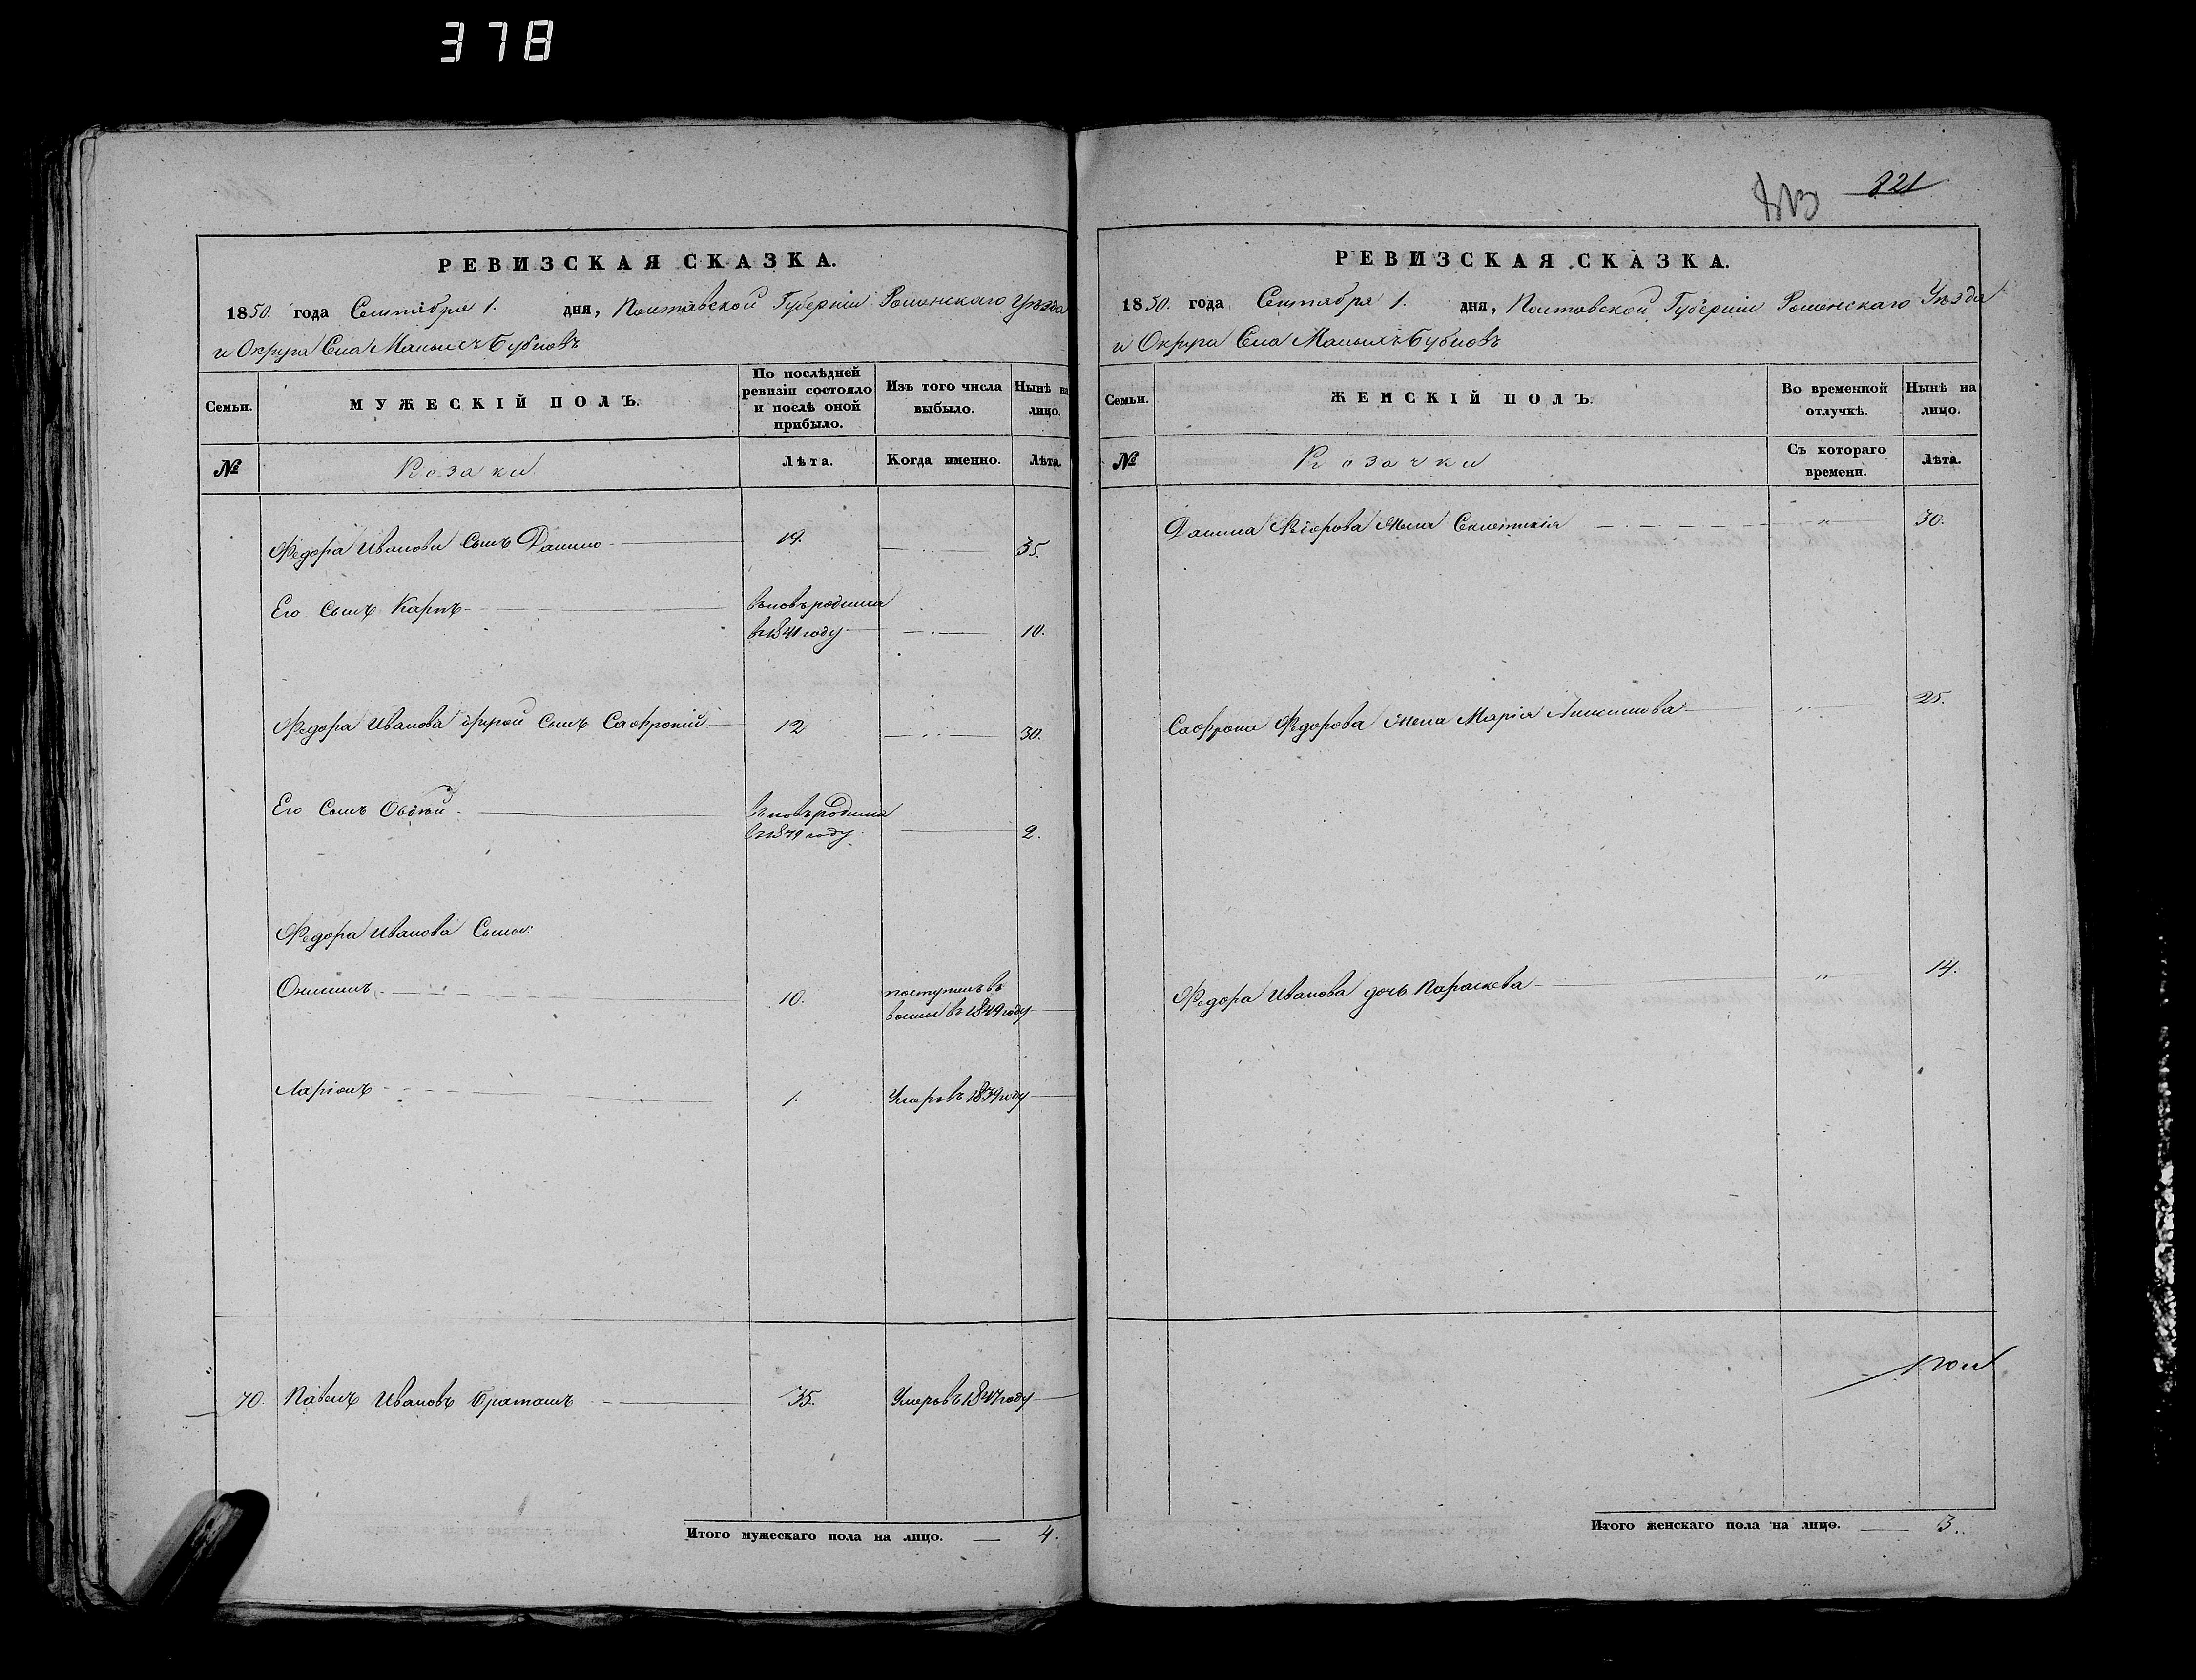 378
821
РЕВИЗСКАЯ СКАЗКА.
1850. года Сентября 1. дня, Полтавской Губерніи Роменскаго Уѣзда
и Округа Села Малыхъ Бубновъ
Семьи.
МУЖЕСКІЙ ПОЛЪ.
По послѣдней ревизіи состояло и послѣ оной прибыло.
Изъ того числа выбыло.
Нынѣ на лицо.
№
Козаки
Лѣта.
Когда именно.
Лѣта.
Федора Иванова Сынъ Данило 19. 35.
Его Сынъ Карпъ вновьрожденъ
в 1841 году 10.
Федора Иванова другой Сынъ Сафроній 12 30.
Его Сынъ Овдѣй
в 1849 году 2.
Федора Иванова Сыны:
10. поступилъ въ
въ 1849 году
Ларіонъ 1. Умеръ въ 1839 году
70. Павелъ Ивановъ Браташъ 35. Умеръ въ 1847 году
Итого мужескаго пола на лицо. 4.
РЕВИЗСКАЯ СКАЗКА.
1850. года Сентября 1. дня, Полтавской Губерніи Роменскаго Уѣзда
и Округа Села Малыхъ Бубновъ
Семьи.
ЖЕНСКІЙ ПОЛЪ.
Во временной отлучкѣ.
Нынѣ на лицо.
№
Козачки
Съ котораго времени.
Лѣта.
Данила Федорова жена 30.
Сафрона Федорова жена Марія 25.
Федора Иванова дочь Параскева 14.
Итого женскаго пола на лицо. 3.